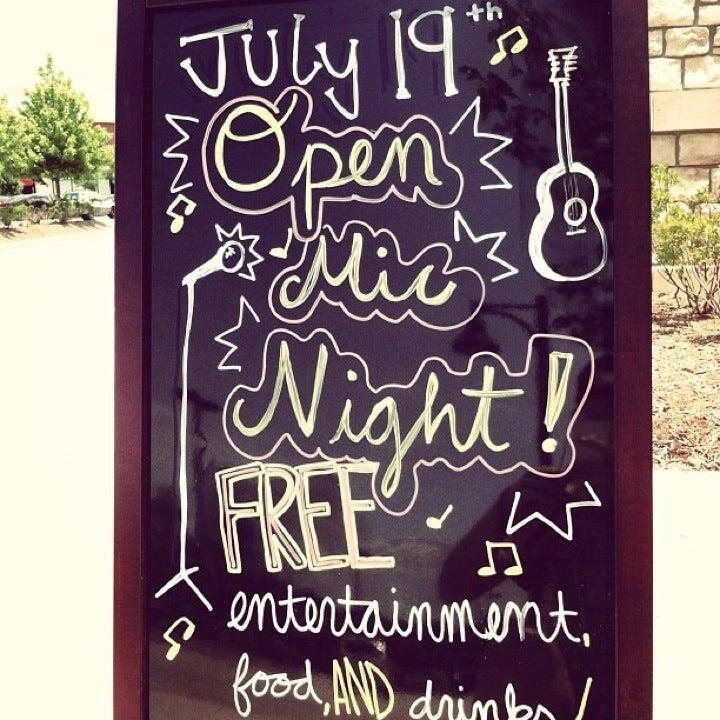 July 19th
Open
Mic
Night!
FREE
entertainment,
food, AND drinks!